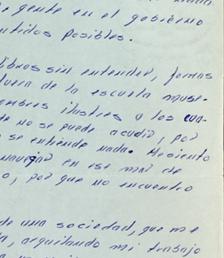 gente en el gobierno
ntidos posibles.
libros sin entender, formas
uera de la escuela
ombres ilustres a los cua-
e no se puede acudir, por
se entiende nada. Me siento
navegar en ese mar de
o, por que no encuentro
de una sociedad, que me
a, arquilando mi trabajo